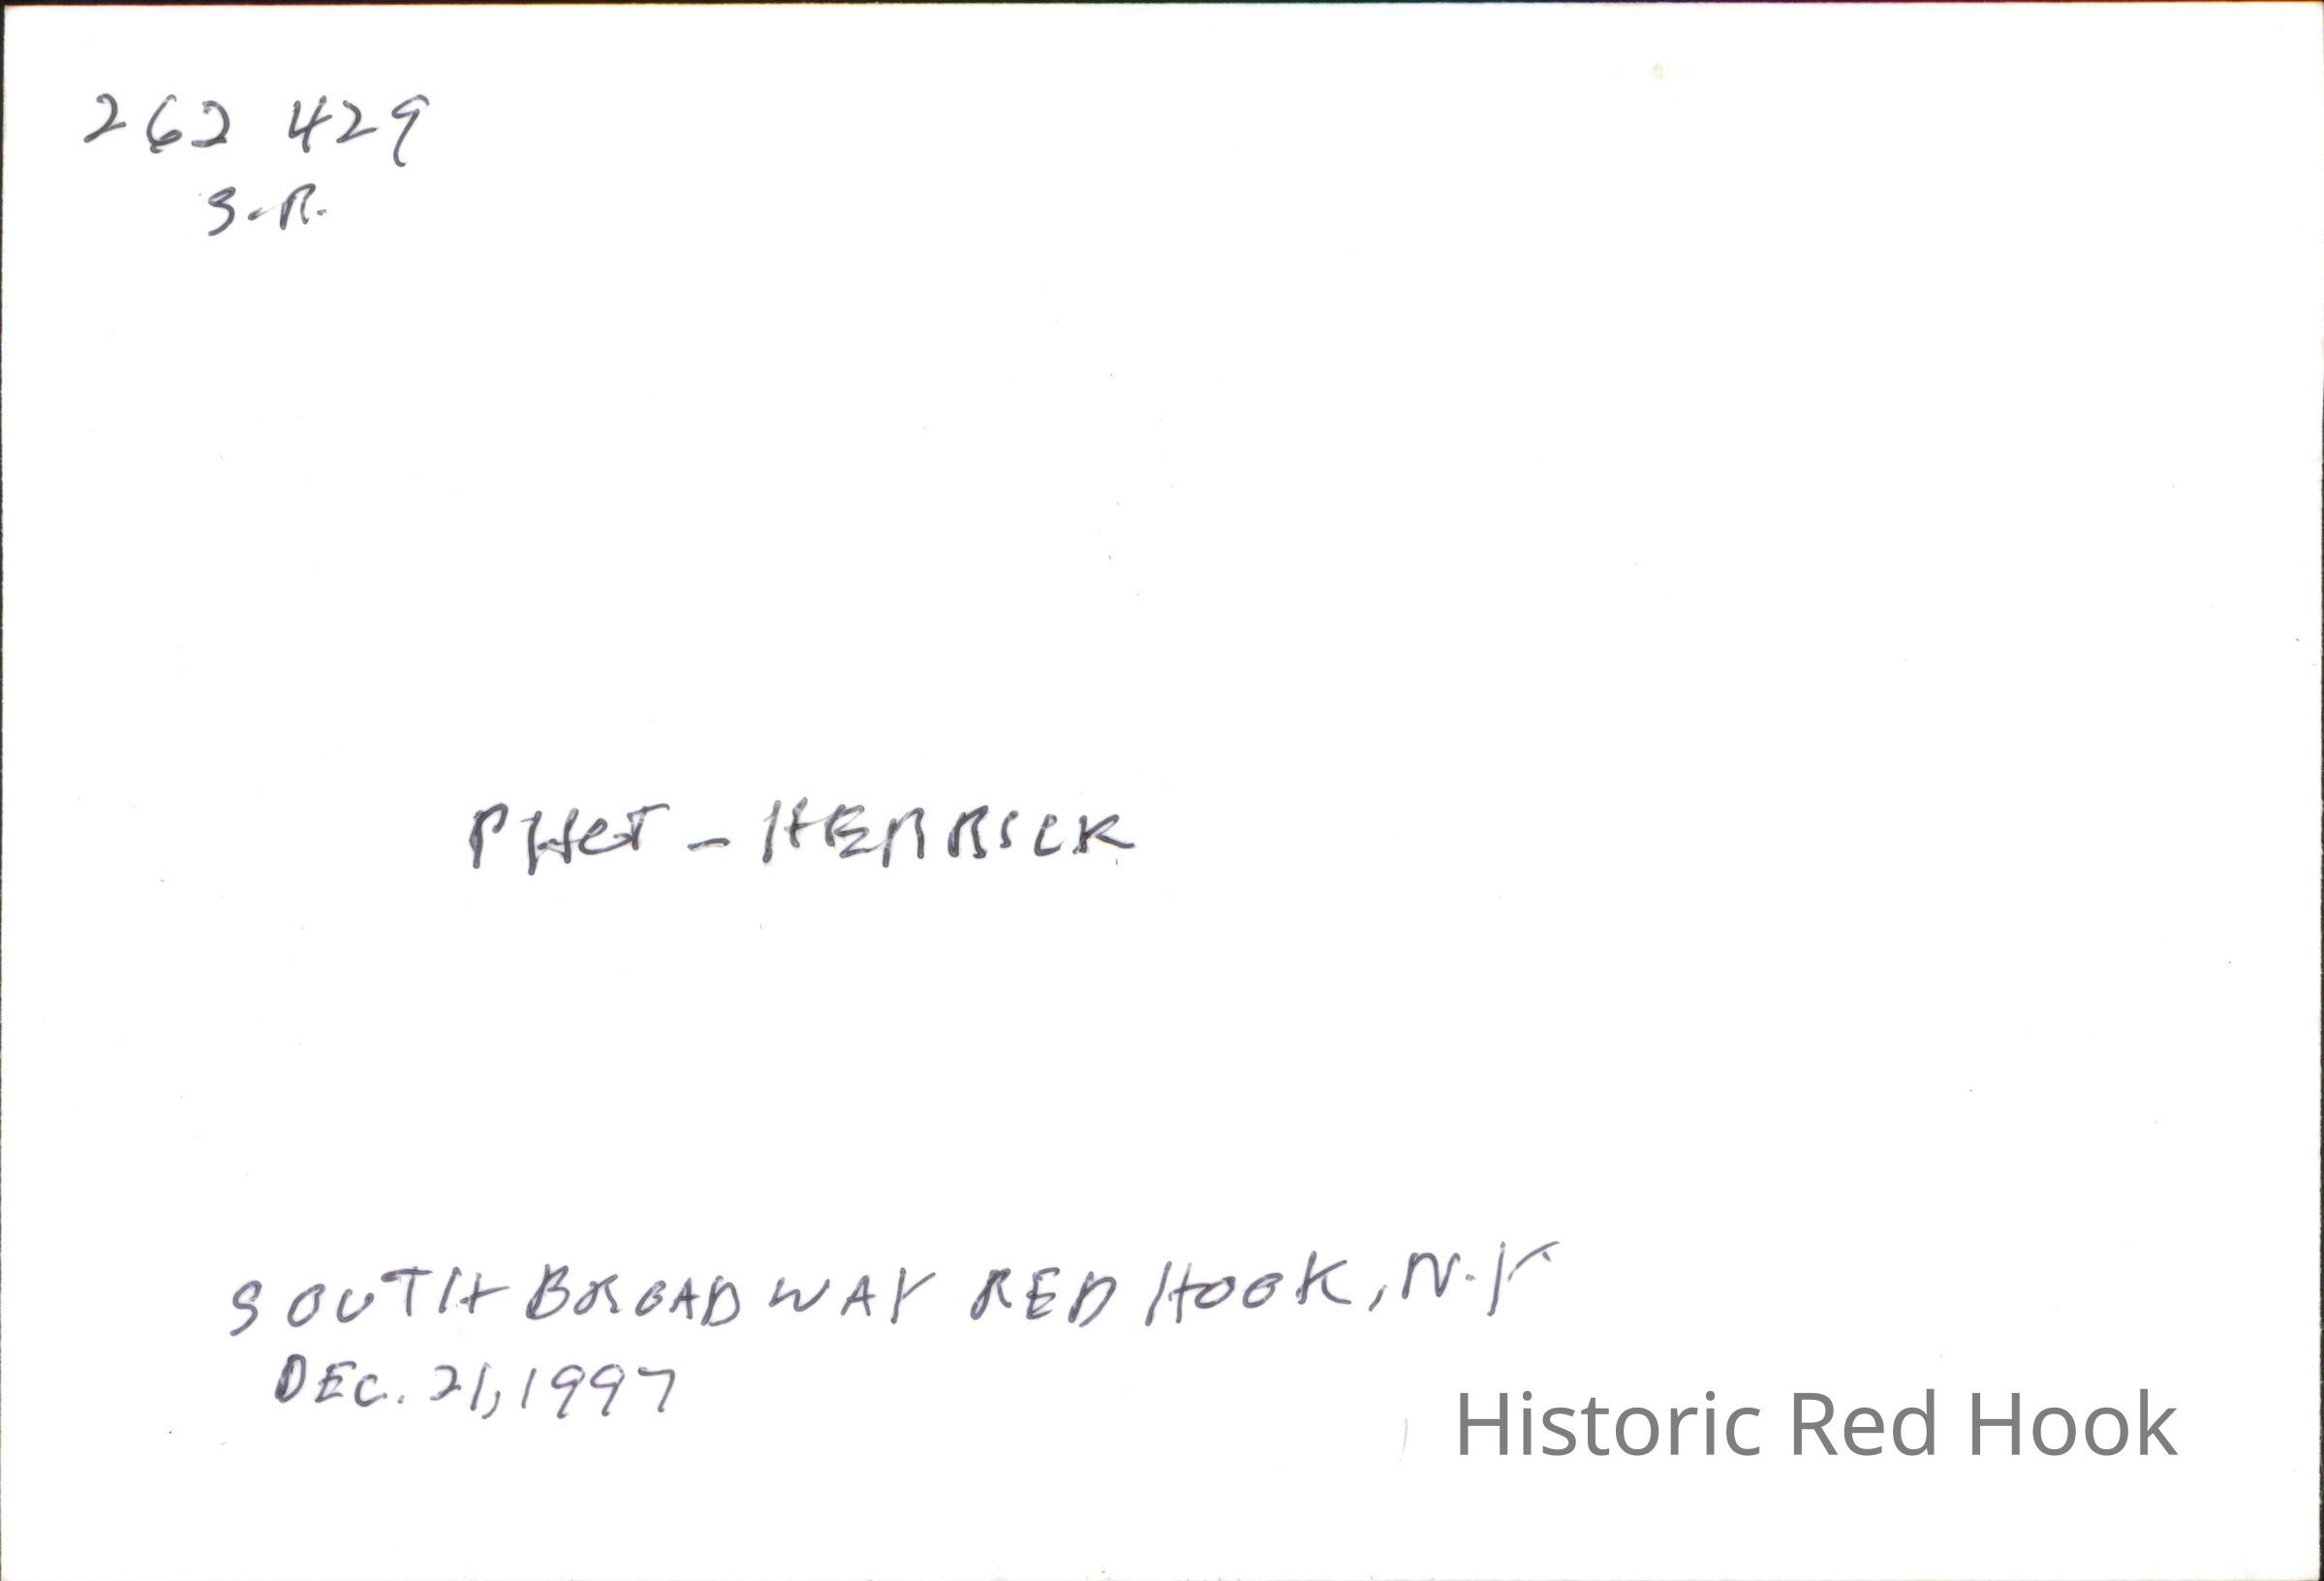 262 429
S.R.
PHOT - HERRICK
SOUTH BROADWAY RED HOOK, N.Y
DEC. 21, 1997
Historic Red Hook